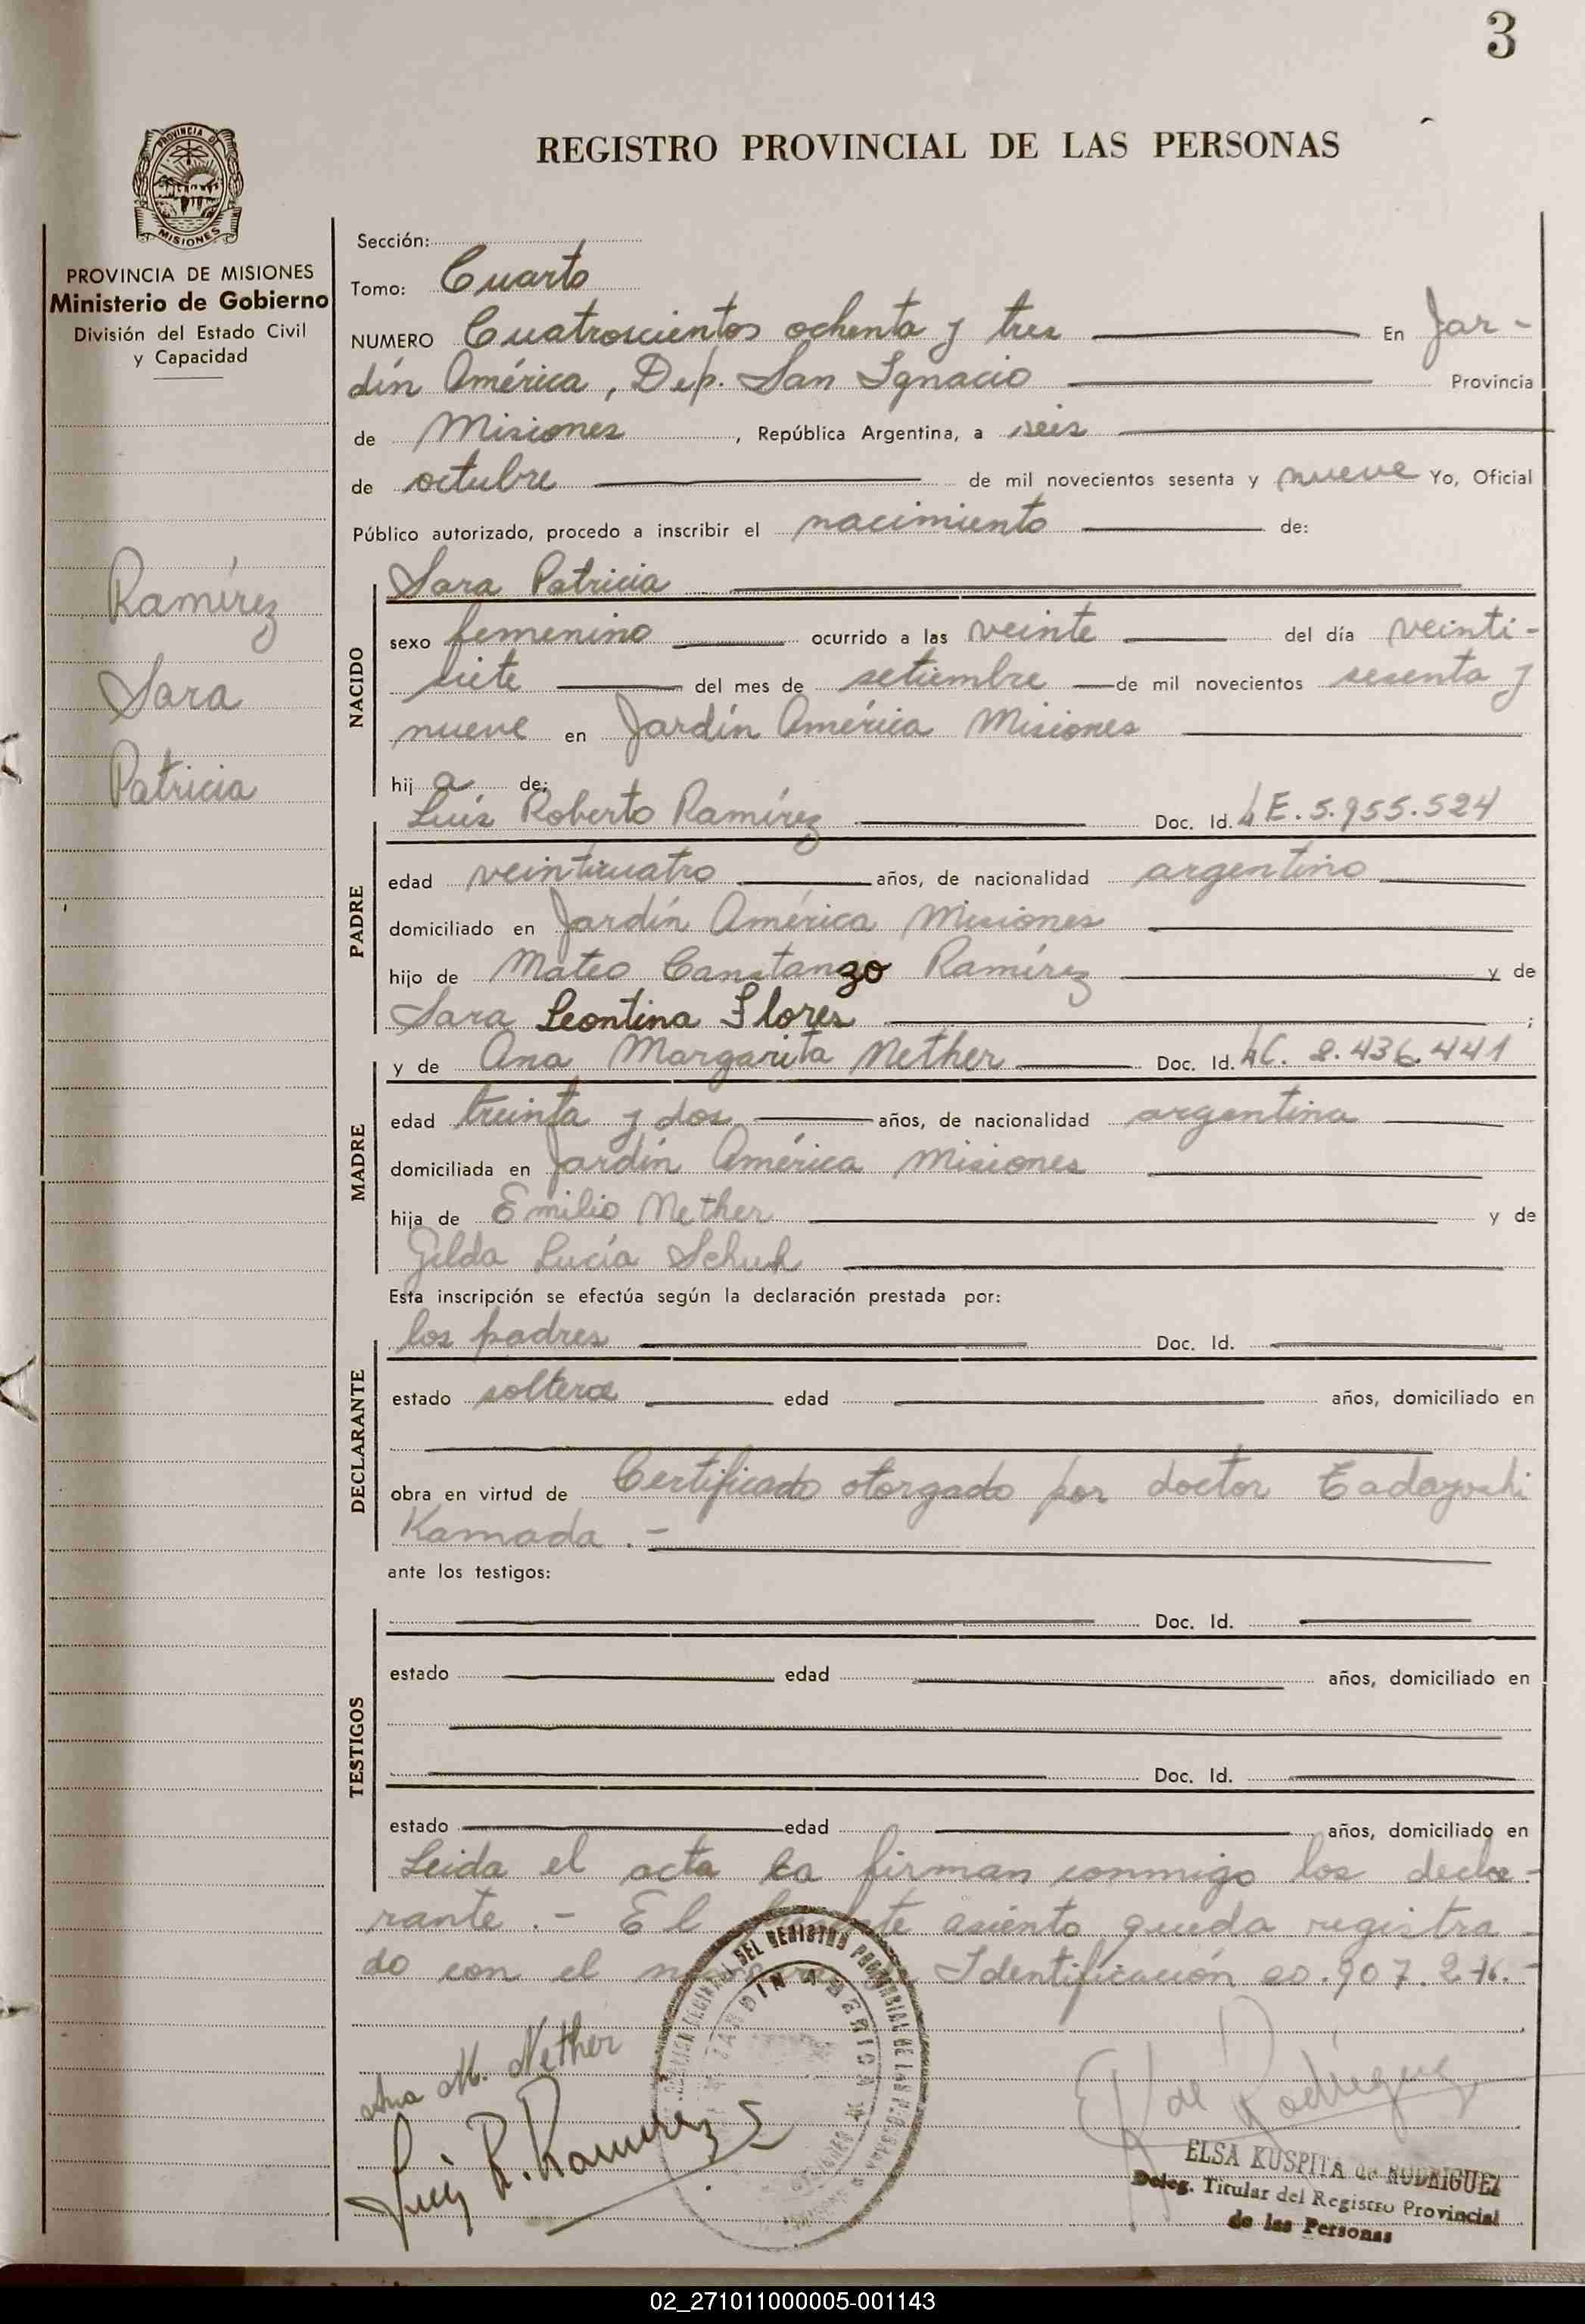 3
REGISTRO PROVINCIAL DE LAS PERSONAS
PROVINCIA DE
MISIONES
PROVINCIA DE MISIONES
Ministerio de Gobierno
División del Estado Civil
y Capacidad
Ramírez
Sara
Patricia
Sección:
Tomo: Cuarto
NUMERO Cuatroscientos ochenta y tres En Jar-
dín América, Dep. San Ignacio Provincia
de Misiones, República Argentina, a seis
de octubre de mil novecientos sesenta y nueve Yo, Oficial
Público autorizado, procedo a inscribir el nacimiento de:
NACIDO
Sara Patricia
sexo femenino ocurrido a las veinte del día veinti-
siete del mes de setiembre de mil novecientos sesenta y
nueve en Jardín América Misiones
hij a de:
PADRE
Luis Roberto Ramírez Doc. Id. LE. 5.955.524
edad veinticuatro años, de nacionalidad argentino
domiciliado en Jardín América Misiones
hijo de Mateo Constanzo Ramírez y de
Sara Leontina Flores ;
MADRE
y de Ana Margarita Nether Doc. Id. LC. 2.436.441
edad treinta y dos años, de nacionalidad argentina
domiciliada en Jardín América Misiones
hija de Emilio Nether y de
Gilda Lucía Schuh
Esta inscripción se efectúa según la declaración prestada por:
DECLARANTE
los padres Doc. Id.
estado edad años, domiciliado en
obra en virtud de Certificado otorgado por doctor Tadayoshi
Kamada .-
ante los testigos:
TESTIGOS
Doc. Id.
estado edad años, domiciliado en
Doc. Id.
estado edad años, domiciliado en
Leida el acta la firman conmigo los decla-
rante .- El asiento queda registra-
do con el Identificación
Ana M. Nether
Luis R. Ramirez
DEL REGISTRO PROVINCIAL DE LAS PERSONAS
JARDIN AMERICA
E K de Rodriguez
ELSA KUSPITA de RODRIGUEZ
Deleg. Titular del Registro Provincial
de las Personas
02_271011000005-001143